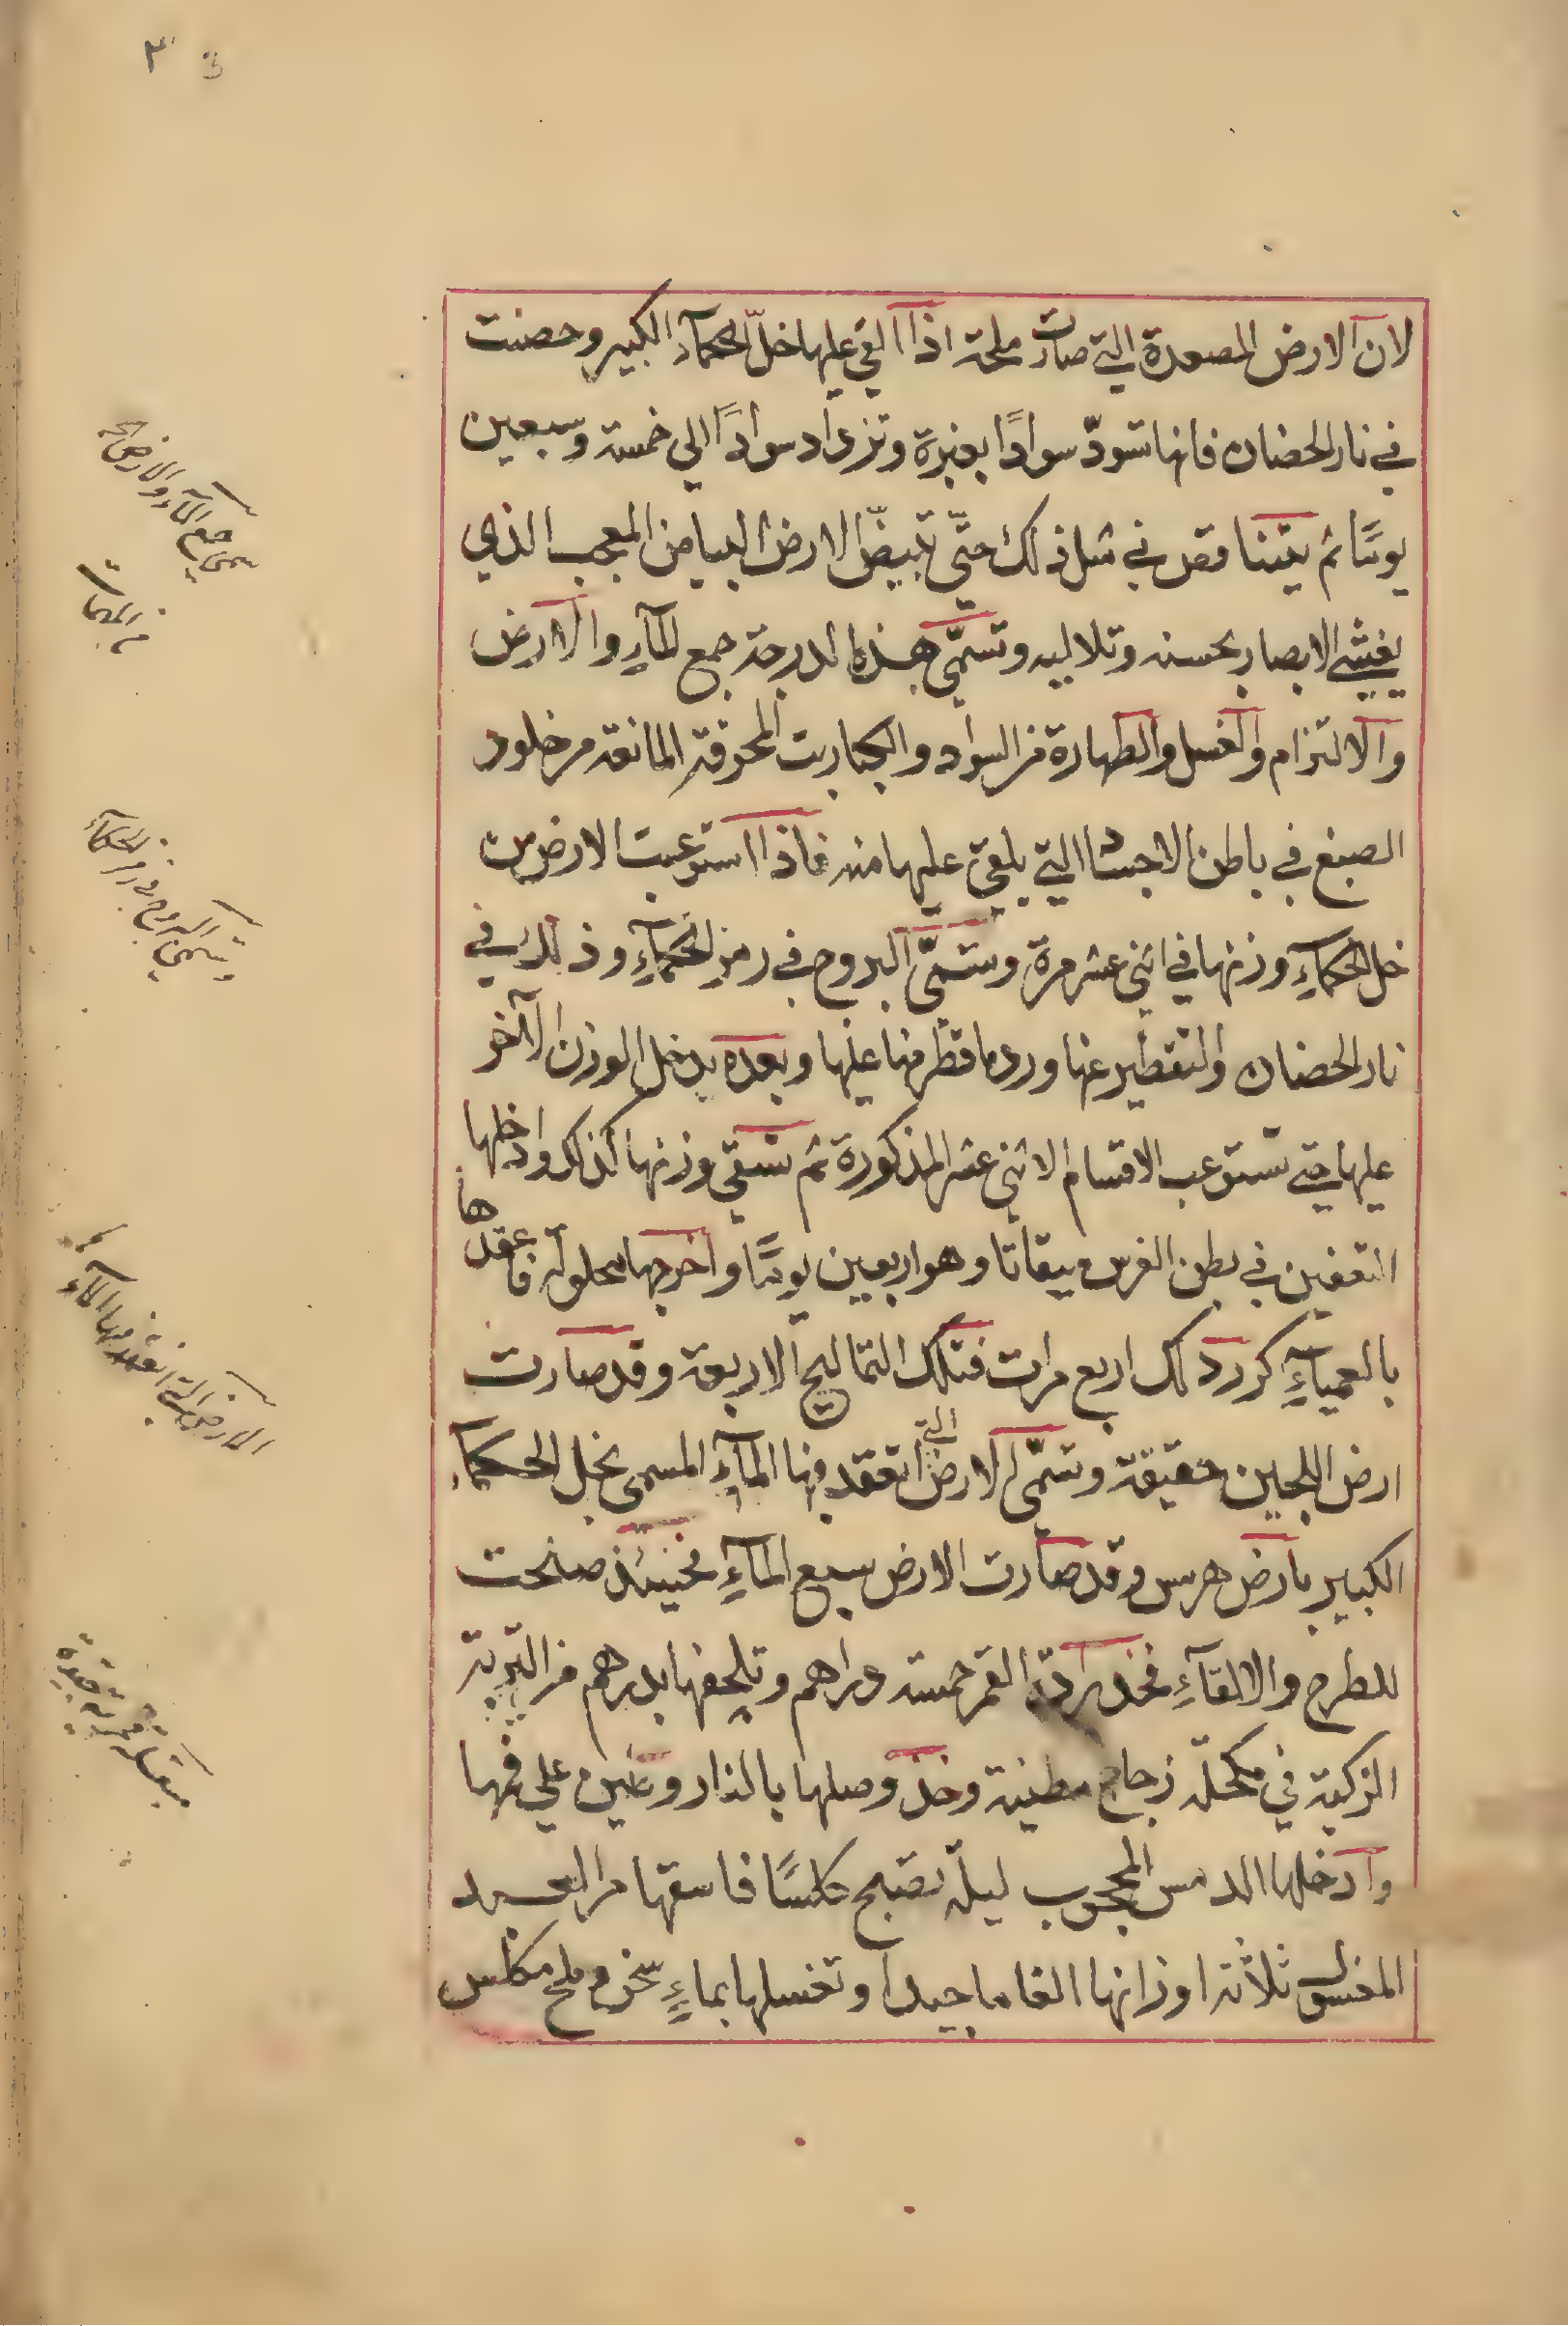 ٣ 3
لان الارض المصعدة التي صارت ملحة اذا القي عليها خلّ الحكمآء الكبير وحضنت
في نار الحضان فانها تسودّ سوادًا بغبرة وتزداد سوادًا الي خمسة وسبعين
يومًا ثم يتبنا قص في مثل ذلك حتّي تبيضّ الارض البياض المعجب الذي
يغشي الابصار بحسنه وتلاليه وتسمّي هذه الدرجة جمع المآءِ والارض
والالتزام والغسل والطهارة من السواد والكباريت المحرقة المانعة من خلود
الصبغ في باطن الاجساد التي يلقي عليها منه فاذا استوعبت الارض من
خل الحكمآءِ وزنها في اثني عشر مرة وتسمّي البروج في رمز الحكمآءِ وذلك في
نار الحضان والتقطير عنها ورد ما قطر منها عليها وبعده يدخل الوزن الآخر
عليها حتي تستوعب الاقسام الاثني عشر المذكورة ثم تسقي وزنها كذلك وادخلها
التعفين في بطن الفرس ميقاتا وهو اربعين يومًا واخرجها محلولة فاعقدها
بالعميآءِ كرر ذلك اربع مرات فتلك التماليح الاربعة وقد صارت
ارض اللجين حقيقة وتسمّي الارض التي انعقد فيها المآءِ المسمي بخل الحكمآء
الكبير بارض هرمس وقد صارت الارض سبع المآءِ فحينئذ صلحت
للطرح والالقآءِ فخذ برادة القمر خمسة دراهم وتلحفها بدرهم من التربة
الزكية في مكحلة زجاج مطينة وخذ وصلها بالنار و على فمها
وادخلها الدمس المجرب ليلة تصبح كلسًا فاسقها من العبد
المغسول ثلاثة اوزانها الغاما جيدا وتغسلها بماءٍ سخن وملح مكلس
جمع المآء والارض
وتسمي البروج في رمز الحكمآء
الارض التي انعقد فيها المآء